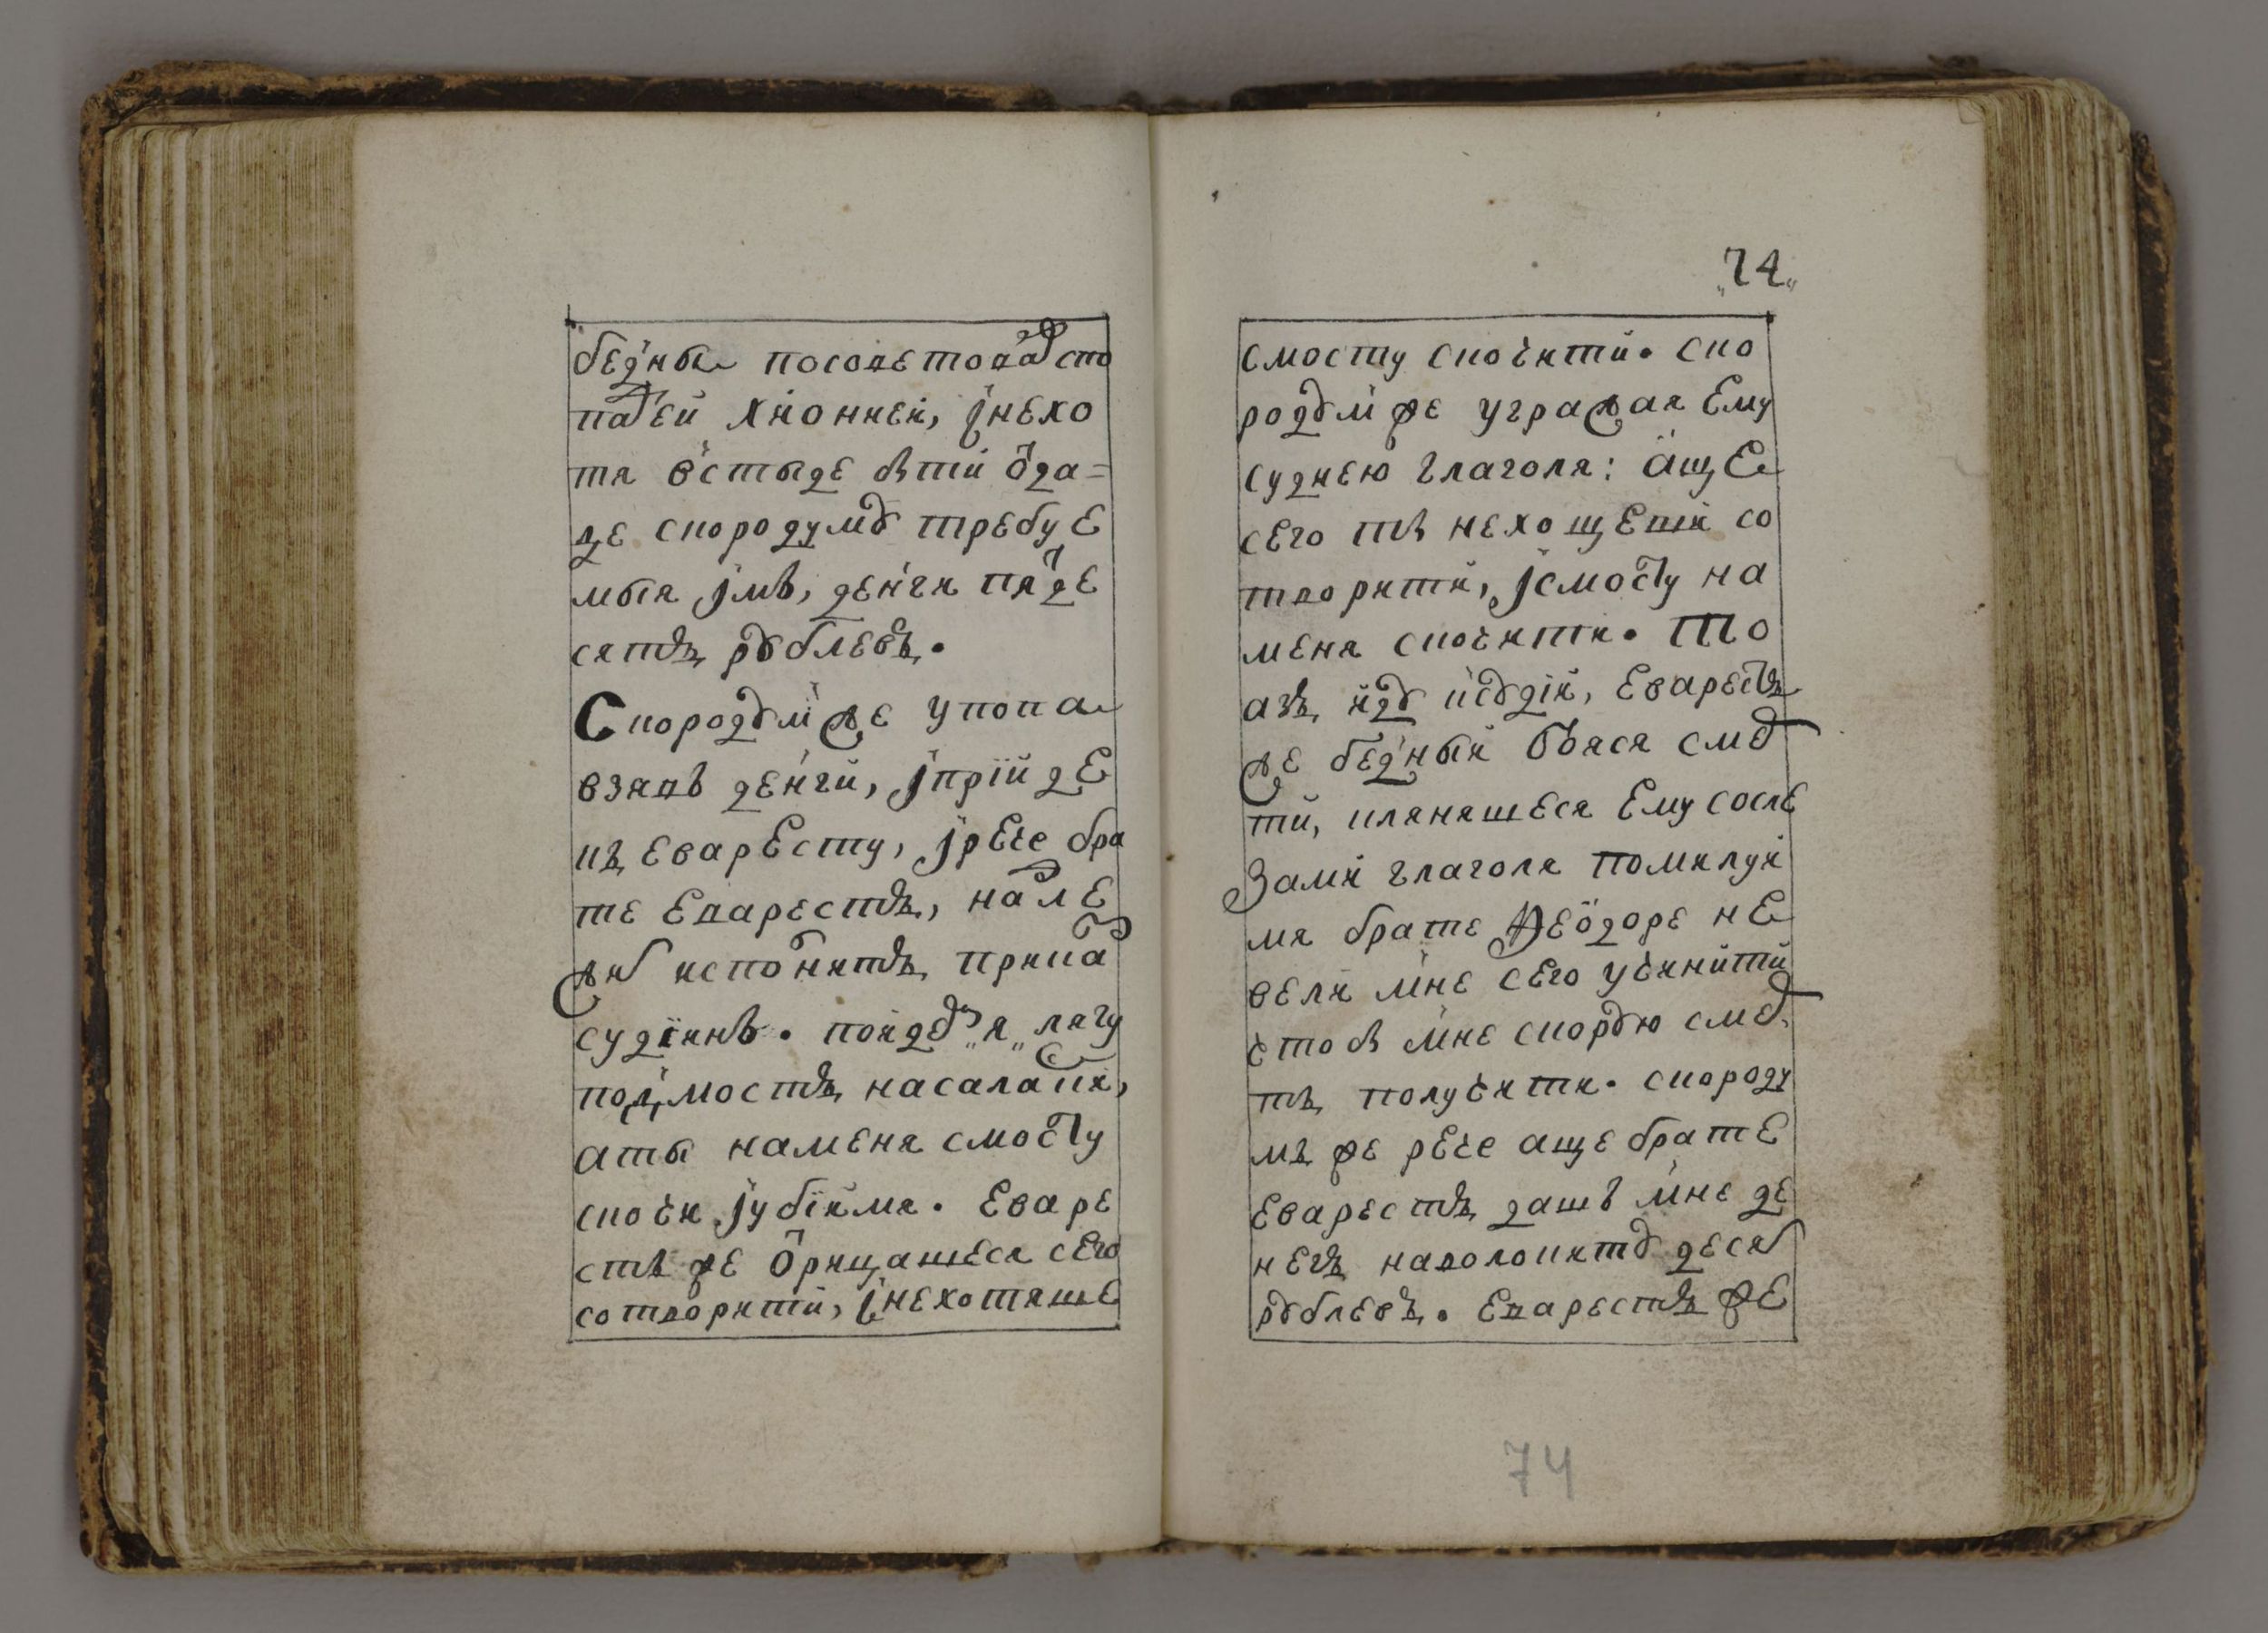 бедныи посоветовав с по
пад̾ей хионией, і не хо
тя в стыде быти ѿда-
де скородуму требуе
мыя імъ, денги пядде
сятъ рублевъ.
Скородум же у попа
взявъ денги, і прїиде
къ еваресту, і рече бра
те еварестъ, надле
жит исполнить приказ
судїинъ. пойду „я„ лягу
под мостъ на салазки,
а ты на меня с мосту
скочи і убїй мя. Еваре
стъ же ѿрицашеся сего
сотворити, і не хотяше
„74„
с мосту скочити. Ско
родум же угрожая ему
суднею глаголя: аще
сего ты не хощеши со
творити, і с мосту на
меня скочити. То
азъ иду к судїи, Еварестъ
же бедный бояся смер
ти, кланяшеся ему со сле
зами глаголя помилуй
мя брате Феѡдоре не
вели мне сего учинити
чтоб мне скорою смер
тъ получити. скороду
мъ же рече аще брате
еварестъ дашъ мне де
негъ на волокиту десят
рублевъ. Еварестъ же
74